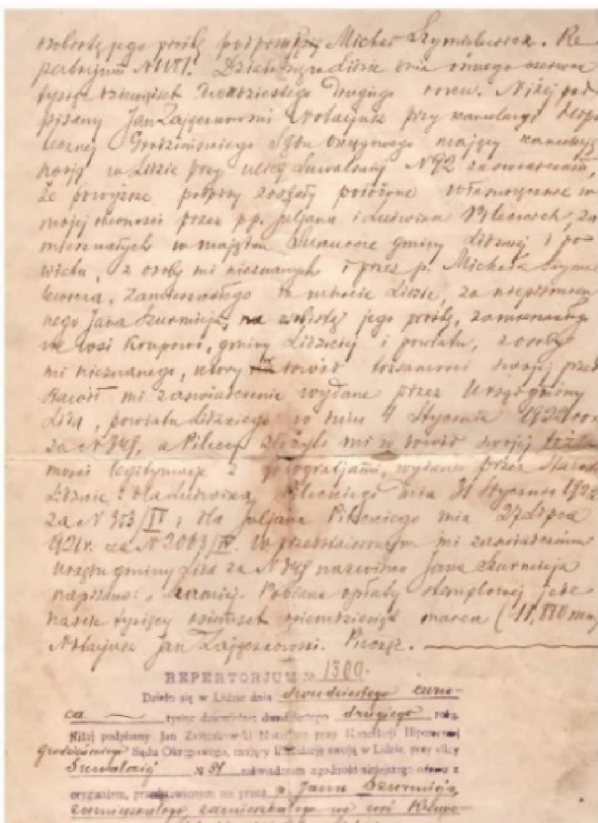 osobistą jego prośbę podpisał Michał Szymielewicz. Re
pertorjum N 1181. Działo się w Lidzie dnia ósmego czerwca
tysiąc dziewięćset dwudziestego drugiego roku. Niżej pod
pisany Jan Zajączkowski Notarjusz przy kancelarji Hypo
tecznej Grodzieńskiego Sądu Okręgowego mający kancelarję
swoją w Lidzie przy ulicy Suwalskiej N 92 zaświadczam,
że powyższe podpisy zostały położone własnoręcznie w
mojej obecności przez pp. Juljana i Ludwika Pileckich, za
mieszkałych w majątku Sukurcze gminy Lidzkiej i po
wiatu, z osoby mi nieznanych i przez p. Michała Szymie
lewicza, zamieszkałego w mieście Lidzie, za niepiśmien
nego Jana Szurmieja, na osobistą jego prośbę, zamieszkałego
we wsi Krupowo, gminy Lidzkiej i powiatu, z osoby
mi nieznanego, który dowód tożsamości swojej przed
stawił mi zaświadczenie wydane przez Urząd gminy
Lida, powiatu Lidzkiego w dniu 4 Stycznia 1922 roku
za N 348, a Pileccy złożyli mi w dowód swojej tożsa
mości legitymacje z fotografjami, wydane przez Starostę
Lidzkie: dla Ludwika Pileckiego dnia 31 Stycznia 1922
za N 303/IV i dla Juljana Pileckiego dnia 27 Lipca
1921 r. za N 2003/IV. W przedstawionym mi zaświadczeniu
urzędu gminy Lida za N 348 nazwisko Jana Szurmieja
napisano: "Szurmiej. Pobrano opłaty stemplowej jede
naście tysięcy osiemset osiemdziesiąt marek (11.880 mar.)
Notarjusz Jan Zajączkowski. Pieczęć.
REPERTORJUM № 1300.
Działo się w Lidzie dnia dwudziestego czerw-
ca tysiąc dziewięćset dwudziestego drugiego roku.
Niżej podpisany Jan Zajączkowski Notarjusz przy Kancelarji Hipotecznej
Grodzieńskiego Sądu Okręgowego, mający kancelarję swoją w Lidzie, przy ulicy
Suwalskiej № 91 zaświadczam zgodność niniejszego odpisu z
oryginałem, przedstawionym mi przez p. Jana Szurmieja,
zamieszkałego we wsi Krupo-